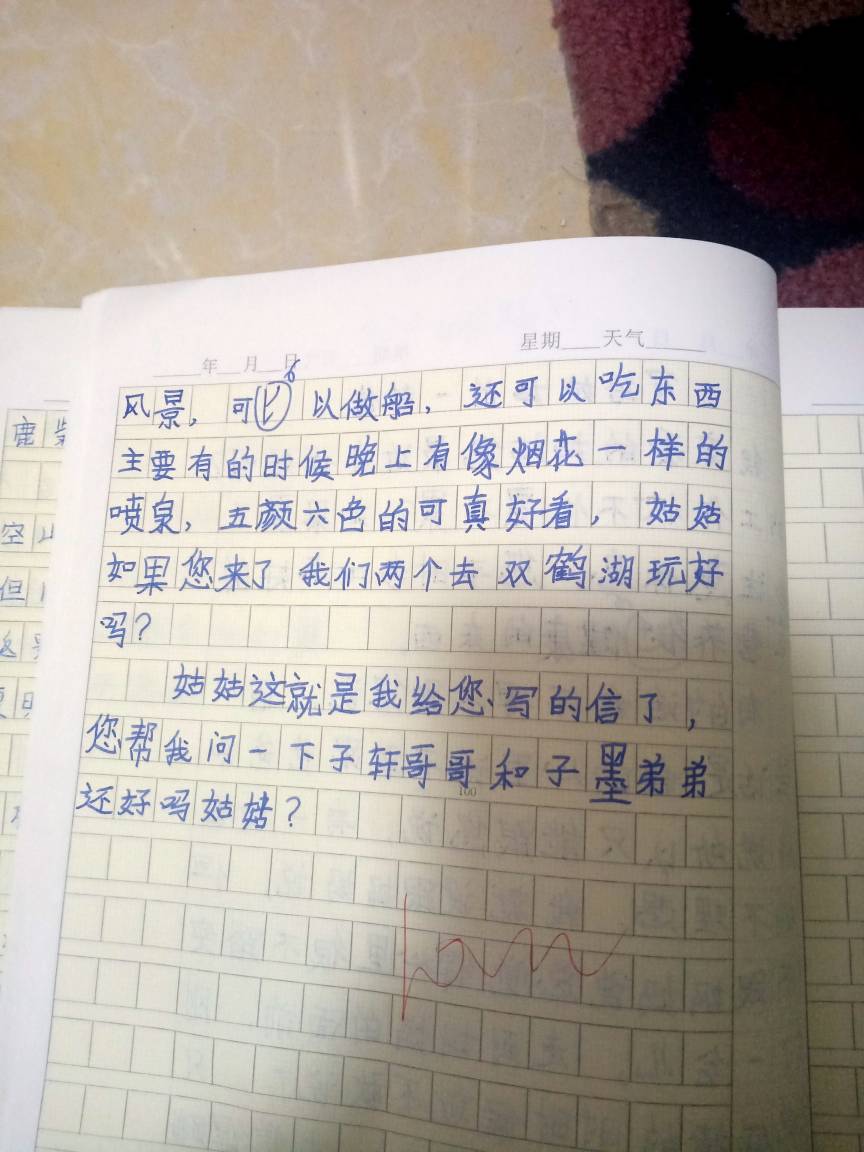 年 月 日 星期 天气
风景，可以做船，还可以吃东西
主要有的时候晚上有像烟花一样的
喷泉，五颜六色的可真好看，姑姑
如果您来了我们两个去双鹤湖玩好
吗？
姑姑这就是我给您写的信了，
您帮我问一下子轩哥哥和子墨弟弟
100
还好吗姑姑？